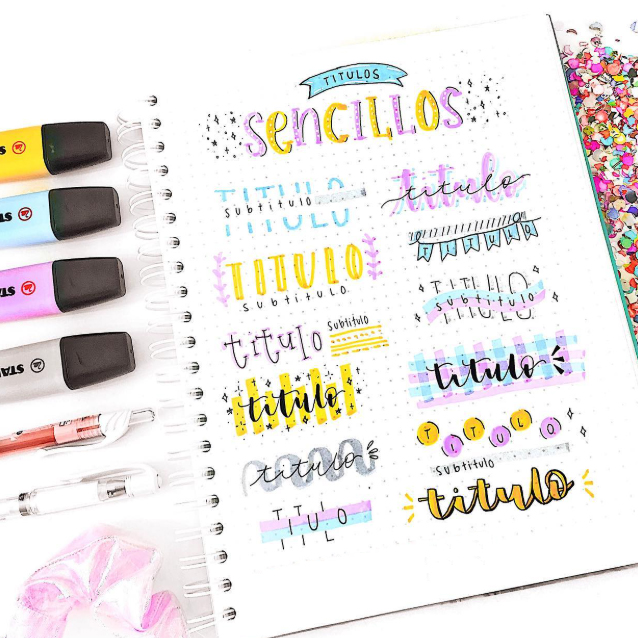 TITULOS
SENCILLOS
TITULO
Subtitulo
titulo
TITULO
TITULO
subtitulo
TITULO
subtitulo
titulo
Subtitulo
titulo
titulo
TITULO
Subtitulo
titulo
TITULO
titulo
STA
STA
STA
STA